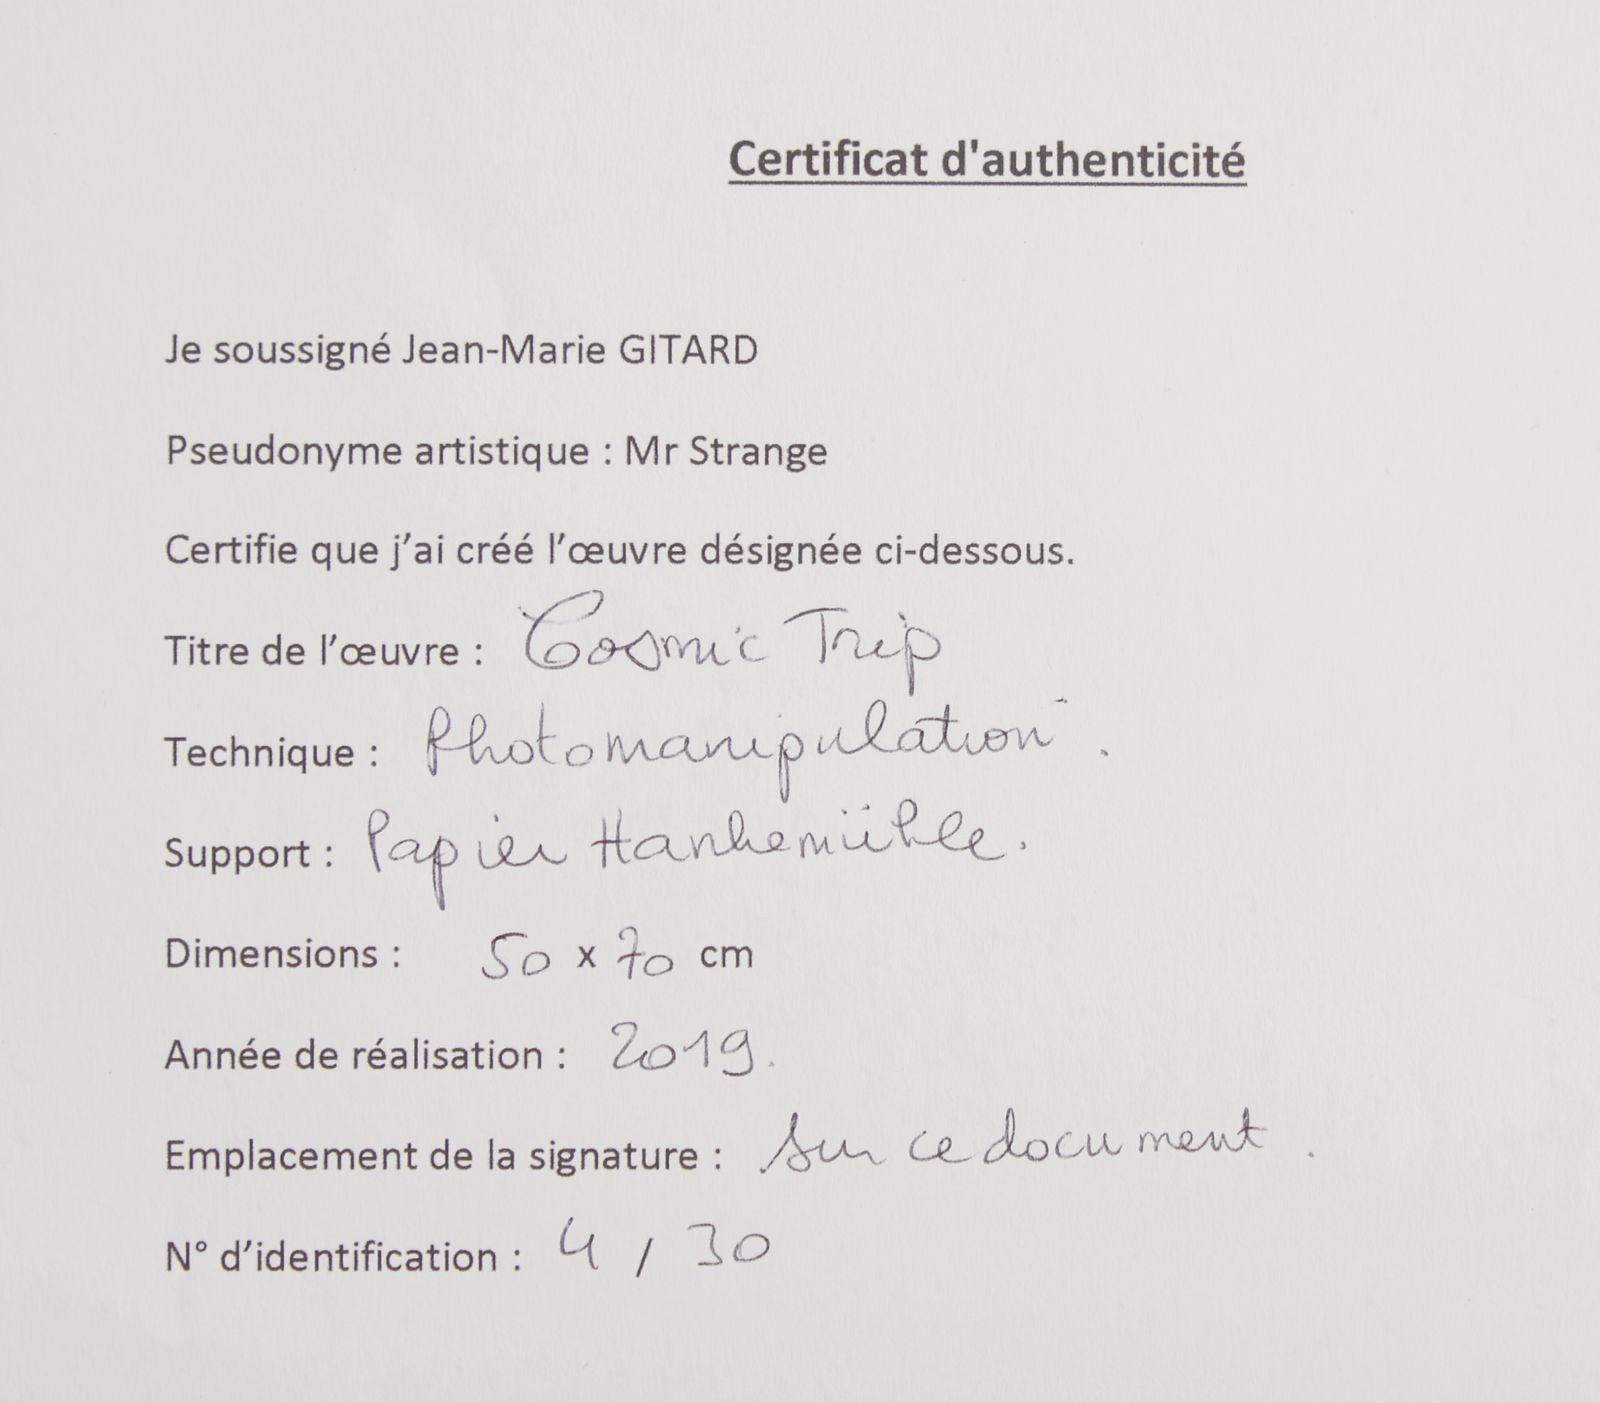 Certificat d'authenticité
Je soussigné Jean-Marie GITARD
Pseudonyme artistique : Mr Strange
Certifie que j'ai créé l'œuvre désignée ci-dessous.
Titre de l'œuvre : Cosmic Trip
Technique : Photomanipulation.
Support : Papier Hanhemühle.
Dimensions : 50 x 70 cm
Année de réalisation : 2019.
Emplacement de la signature : sur ce document.
N° d'identification : 4 / 30